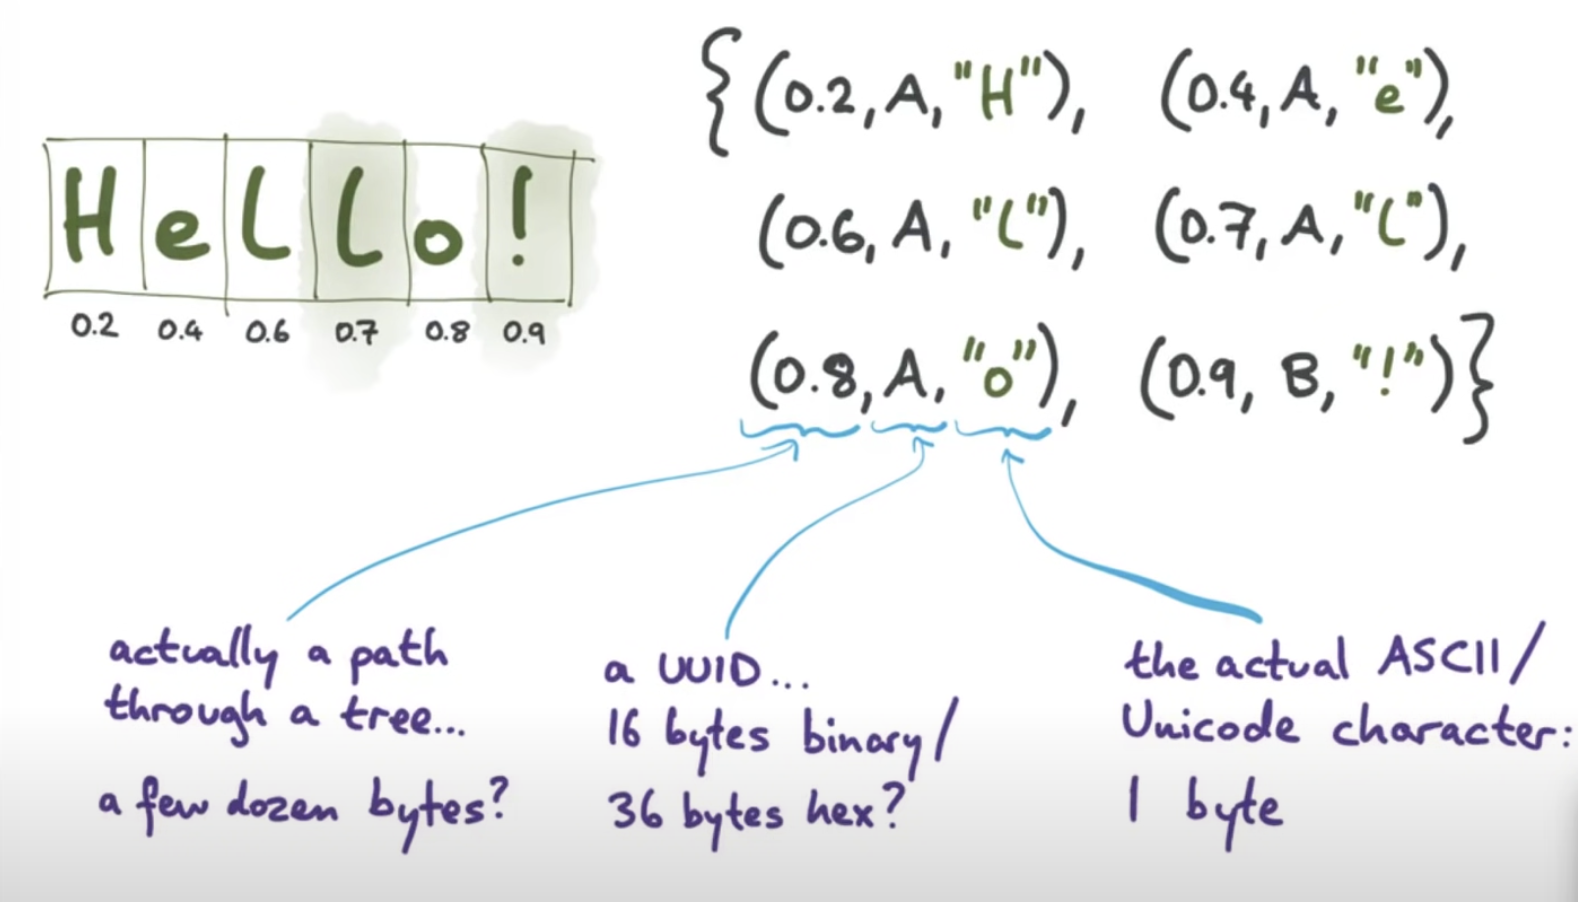 {(0.2, A, "H"), (0.4, A, "e"),
Hello!
(0.6, A, "l"), (0.7, A, "l"),
0.2 0.4 0.6 0.7 0.8 0.9
(0.8, A, "o"), (0.9, B, "!")}
actually a path
through a tree...
a few dozen bytes?
a UUID...
16 bytes binary/
36 bytes hex?
the actual ASCII/
Unicode character:
1 byte